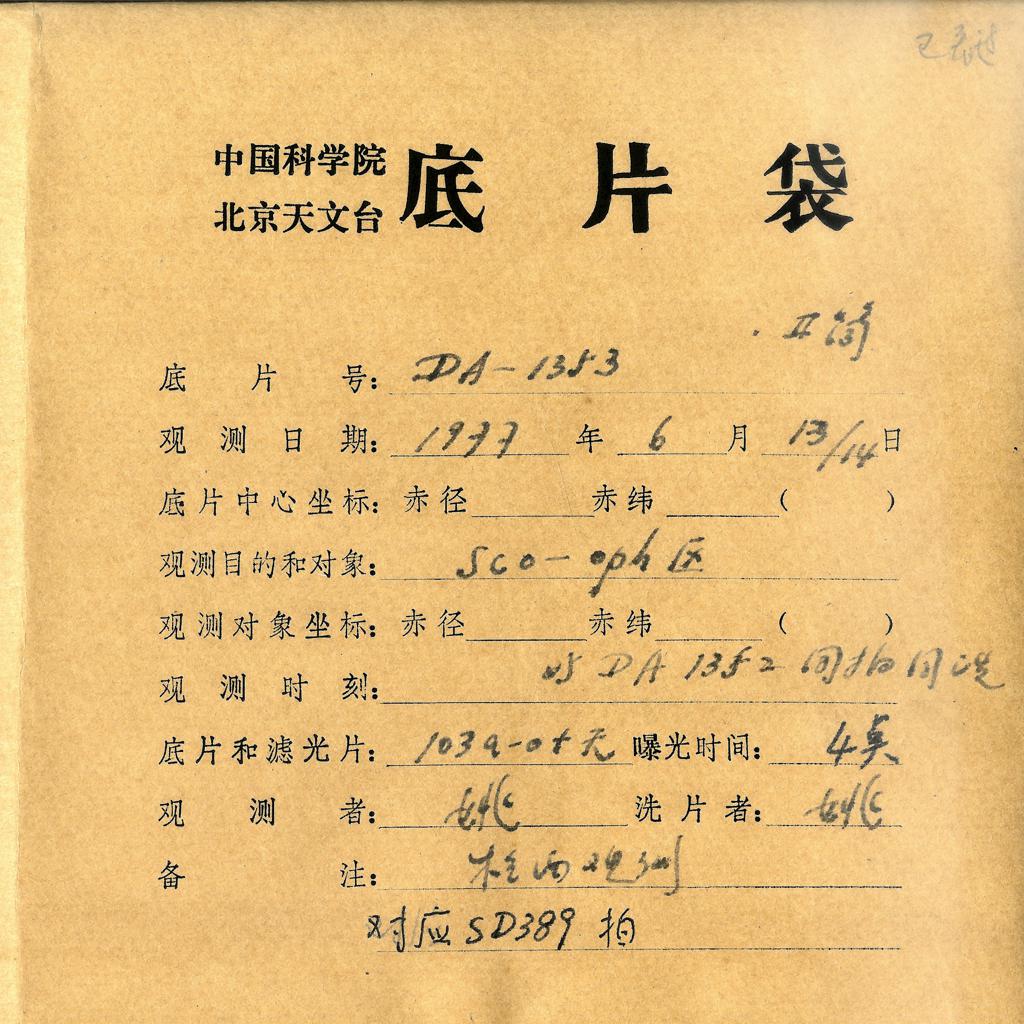 中国科学院
北京天文台 底片袋
II 筒
底片号: DA-1353
观测日期: 1977年 6月 13/14日
底片中心坐标: 赤径 赤纬 ( )
观测目的和对象: Sco-oph 区
观测对象坐标: 赤径 赤纬 ( )
观测时刻: 与 DA 1352 同拍同洗
底片和滤光片: 103a-O+无 曝光时间: 4
观测者: 姚 洗片者: 姚
备注: 观测
对应 SD389 拍